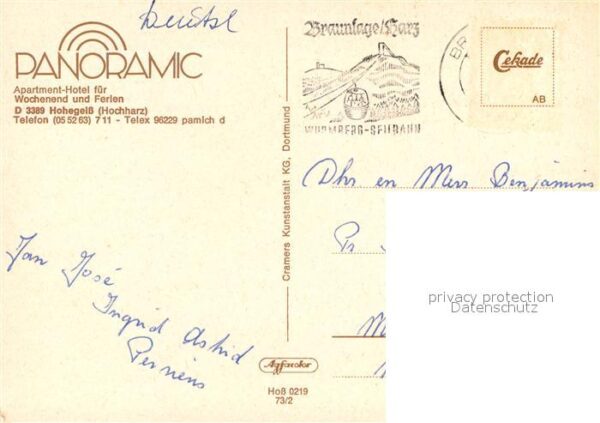 PANORAMIC
Apartment-Hotel für
Wochenend und Ferien
D 3389 Hohegeiß (Hochharz)
Telefon (05 52 63) 7 11 - Telex 96229 pamich d
Braunlage/Harz
WURMBERG-SEILBAHN
BR
Cekade
AB
Cramers Kunstanstalt KG, Dortmund
Dhr en Mevr Benjamins
Pr
M
privacy protection
Datenschutz
Jan José
Ingrid Astrid
Agfacolor
Hoß 0219
73/2